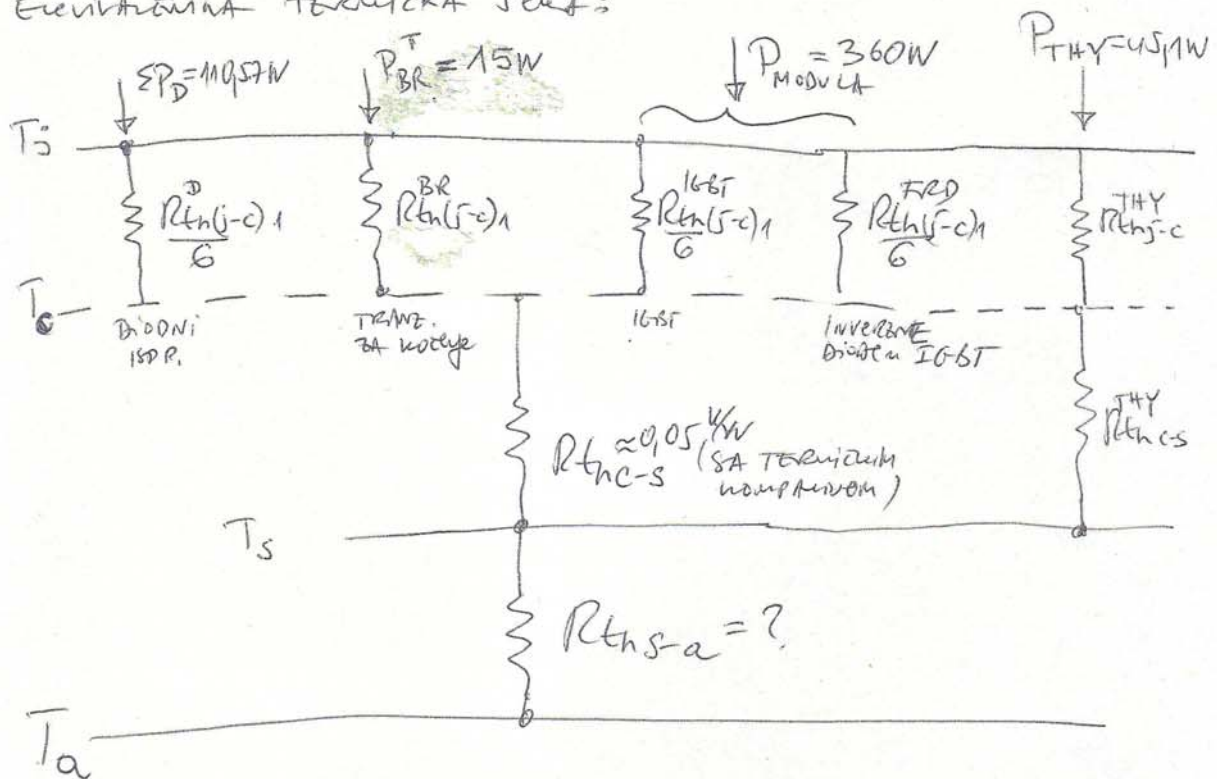 EKVIVALENTNA TERMIČKA ŠEMA:
ΣP_D=110,57W
P_BR^T = 15W
P_MODULA = 360W
P_THY=45,1W
Tj
R_th(j-c)1^D / 6
R_th(j-c)1^BR
R_th(j-c)1^IGBT / 6
R_th(j-c)1^FRD / 6
R_thj-c^THY
Tc
DIODNI
ISPR.
TRANZ.
ZA KOČENJE
IGBT
INVERZNE
DIODE u IGBT
R_thc-s ≈0,05 K/W (SA TERMIČKIM
KOMPAUNDOM)
R_thc-s^THY
Ts
R_ths-a = ?
Ta